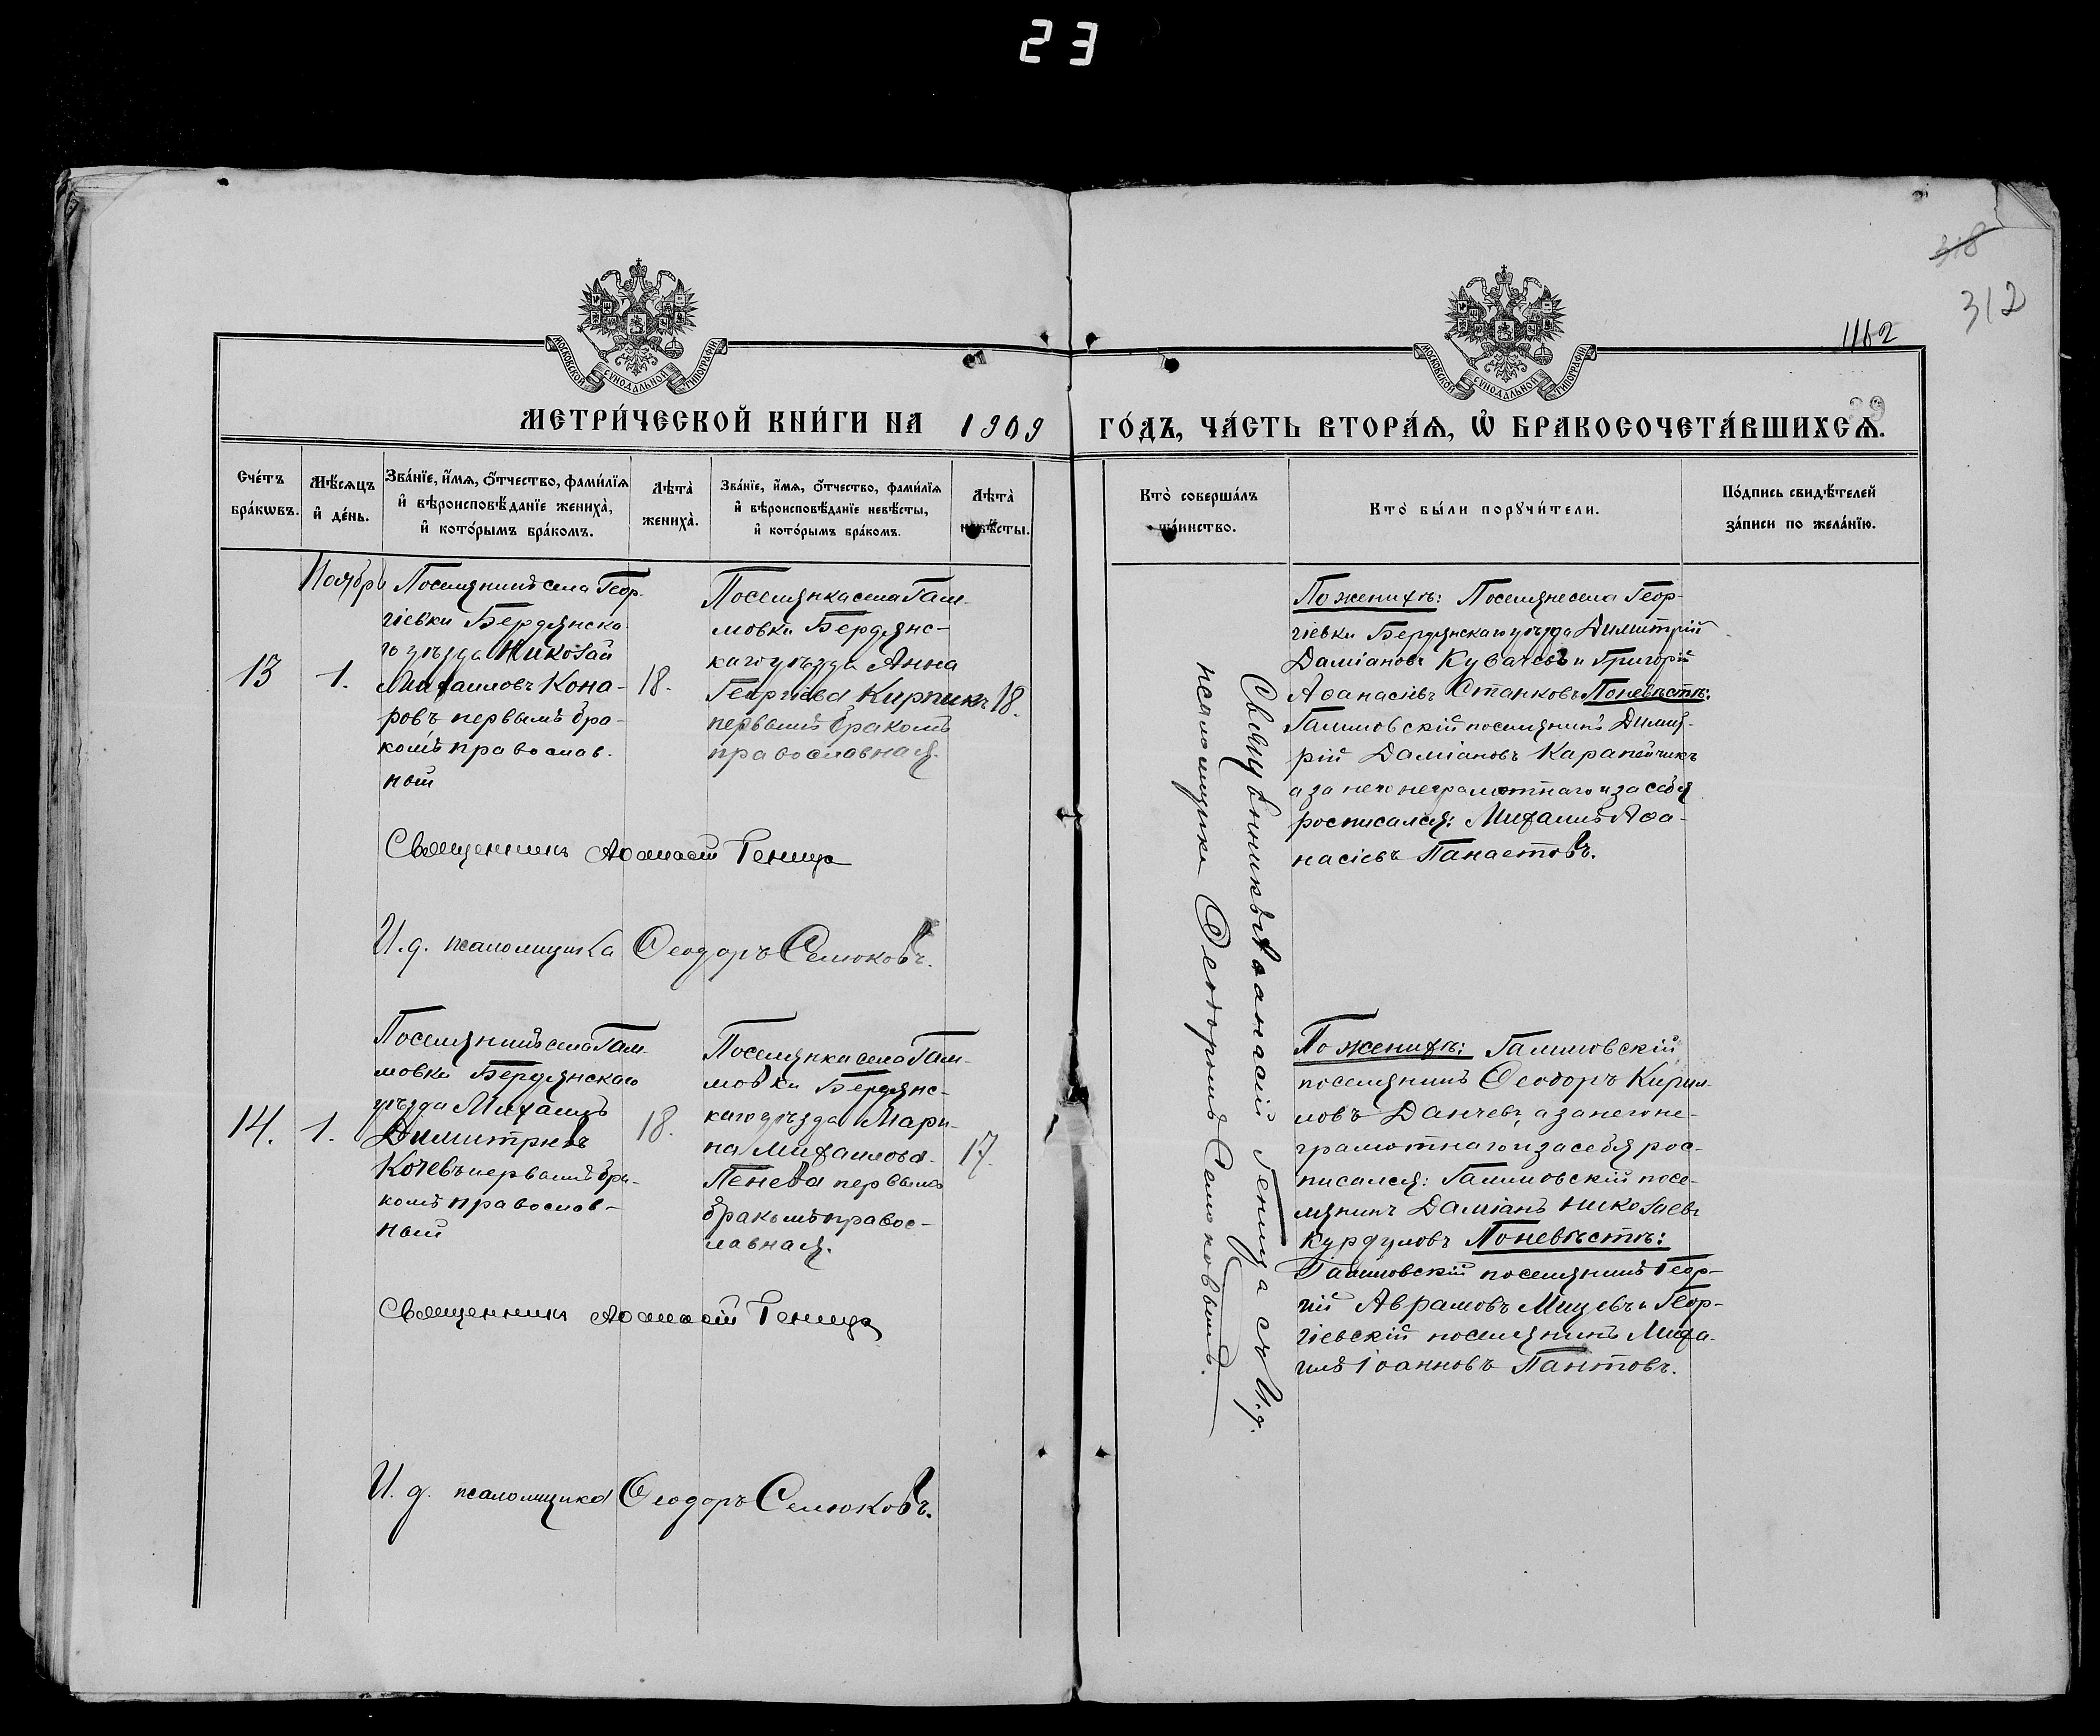 23
318
312
1162
МОСКОВСКОЙ СѴНОДАЛЬНОЙ ТИПОГРАФІИ
МОСКОВСКОЙ СѴНОДАЛЬНОЙ ТИПОГРАФІИ
МЕТРИ́ЧЕСКОЙ КНИ́ГИ НА 1909 ГО́ДЪ, ЧА́СТЬ ВТОРА́Я, Ѡ҆ БРАКОСОЧЕТА́ВШИХСѦ.
Сче́тъ бра́кѡвъ.
Мѣ́сѧцъ и҆ де́нь.
Зва́нїе, и҆́мѧ, ѻ҆́тчество, фами́лїѧ
и҆ вѣроисповѣ́данїе жениха̀,
и҆ кото́рымъ бра́комъ.
Лѣ́та̀ жениха̀.
Зва́нїе, и҆́мѧ, ѻ҆́тчество, фами́лїѧ
и҆ вѣроисповѣ́данїе невѣ́сты,
и҆ кото́рымъ бра́комъ.
Лѣ́та̀ невѣ́сты.
Кто̀ соверша́лъ та́инство.
Кто̀ бы́ли порꙋчи́тели.
По́дпись свидѣ́телей
за́писи по жела́нїю.
Ноябрь
13
1.
Поселянинъ села Геор-
гіевки Бердянска-
го уѣзда Николай
Михаиловъ Кона-
ровъ первымъ бра-
комъ православ-
ный
18.
Поселянка села Гам-
мовки Бердянс-
каго уѣзда Анна
Георгіева Кирпикъ
первымъ бракомъ
православная.
18.
Священникъ Аѳанасій Геница
И. д. псаломщика Ѳеодоръ Семоковъ.
14.
1.
Поселянинъ села Гам-
мовки Бердянскаго
уѣзда Михаилъ
Димитріевъ
Кочевъ первымъ бра-
комъ православ-
ный
18.
Поселянка села Гам-
мовки Бердянс-
каго уѣзда Мари-
на Михаилова
Пенева первымъ
бракомъ правос-
лавная.
17.
Священникъ Аѳанасій Геница
И. д. псаломщика Ѳеодоръ Семоковъ.
Священникъ Аѳанасій Геница съ И. д.
псаломщика Ѳеодоромъ Семоковымъ.
По женихѣ: Поселяне села Геор-
гіевки Бердянскаго уѣзда Димитрій
Даміановъ Кувачевъ и Григорій
Аѳанасіевъ Станковъ По невѣстѣ:
Гаммовскій поселянинъ Димит-
рій Даміановъ Карапейчикъ
а за него неграмотнаго и за себя
росписался: Михаилъ Аѳа-
насіевъ Панаетовъ.
По женихѣ: Гаммовскій
поселянинъ Ѳеодоръ Кирил-
ловъ Данчевъ, а за него не-
грамотнаго и за себя рос-
писался: Гаммовскій посе-
лянинъ Даміанъ Николаевъ
Курдумовъ По невѣстѣ:
Гаммовскій поселянинъ Геор-
гій Аврамовъ Мицевъ и Геор-
гіевскій поселянинъ Миха-
илъ Іоанновъ Пантовъ.